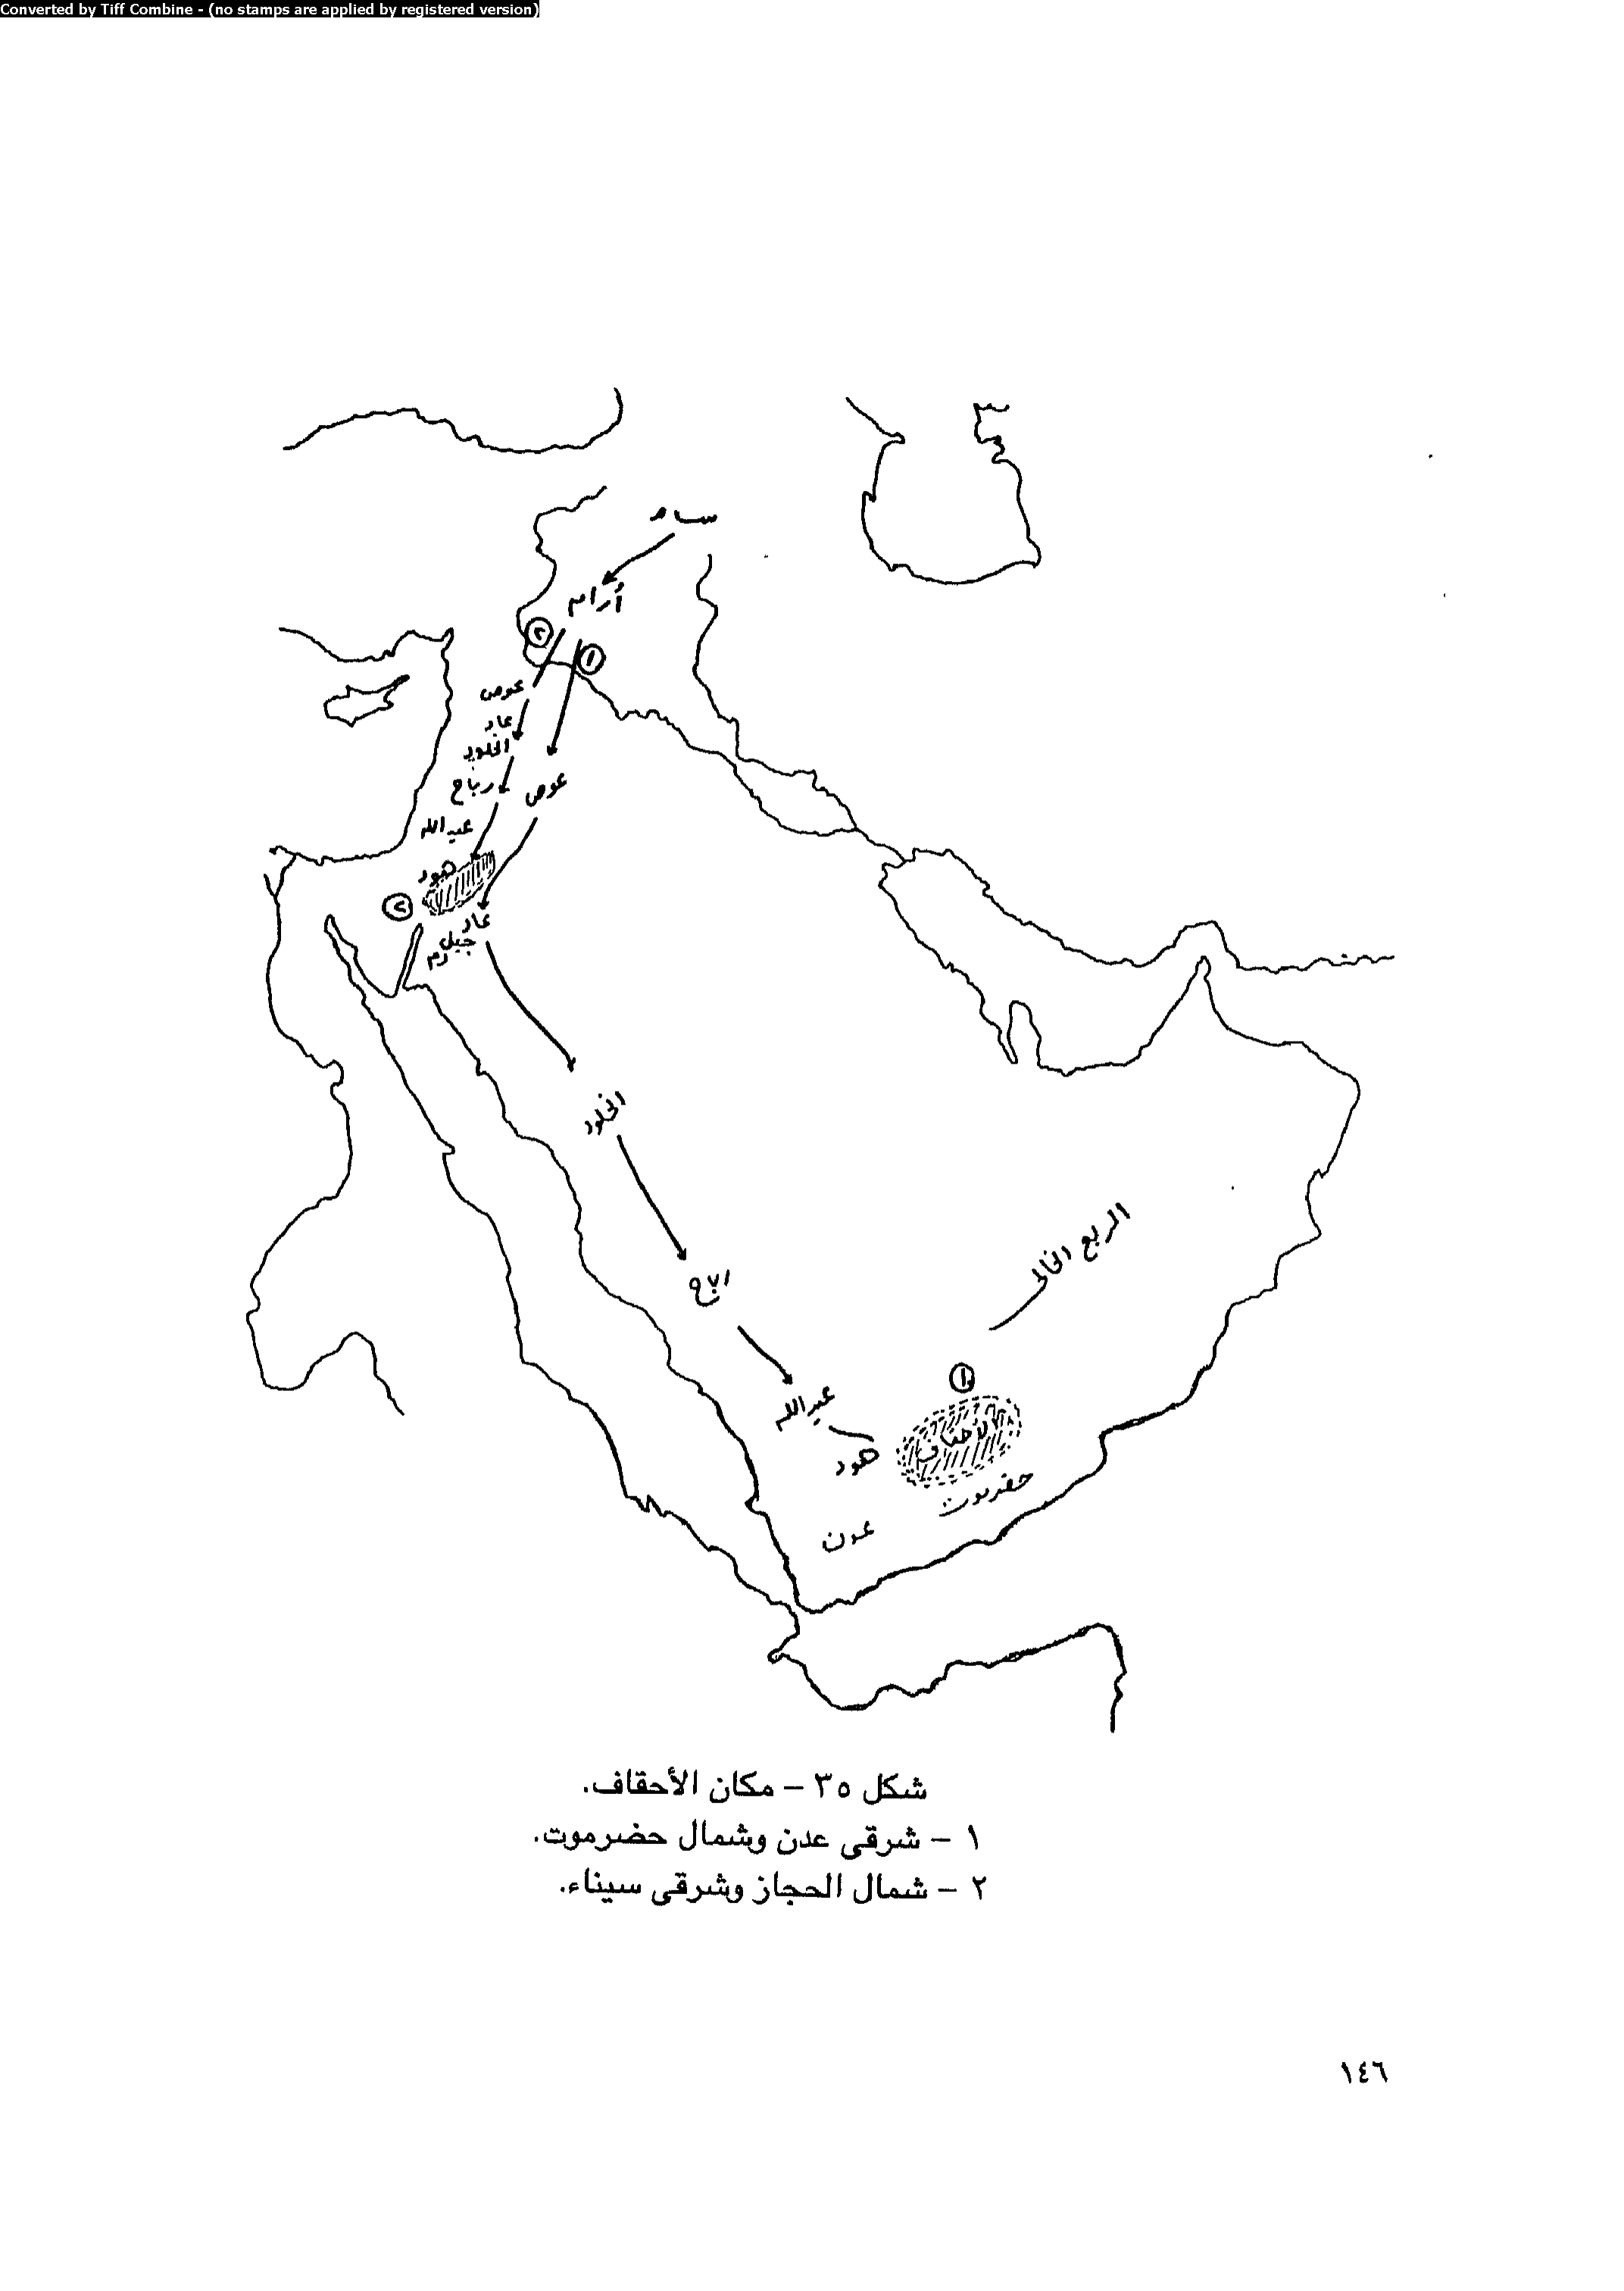 Converted by Tiff Combine - (no stamps are applied by registered version)
سام
أرام
٢
١
عوص
عاد
الخلود
رباح
عوص
عبدالله
هود
٢
عاد
جبل
رم
الخلود
رباح
الربع الخالى
١
عبدالله
الأحقاف
هود
حضرموت
عدن
شكل ٣٥ – مكان الأحقاف.
١ – شرقى عدن وشمال حضرموت.
٢ – شمال الحجاز وشرقى سيناء.
١٤٦